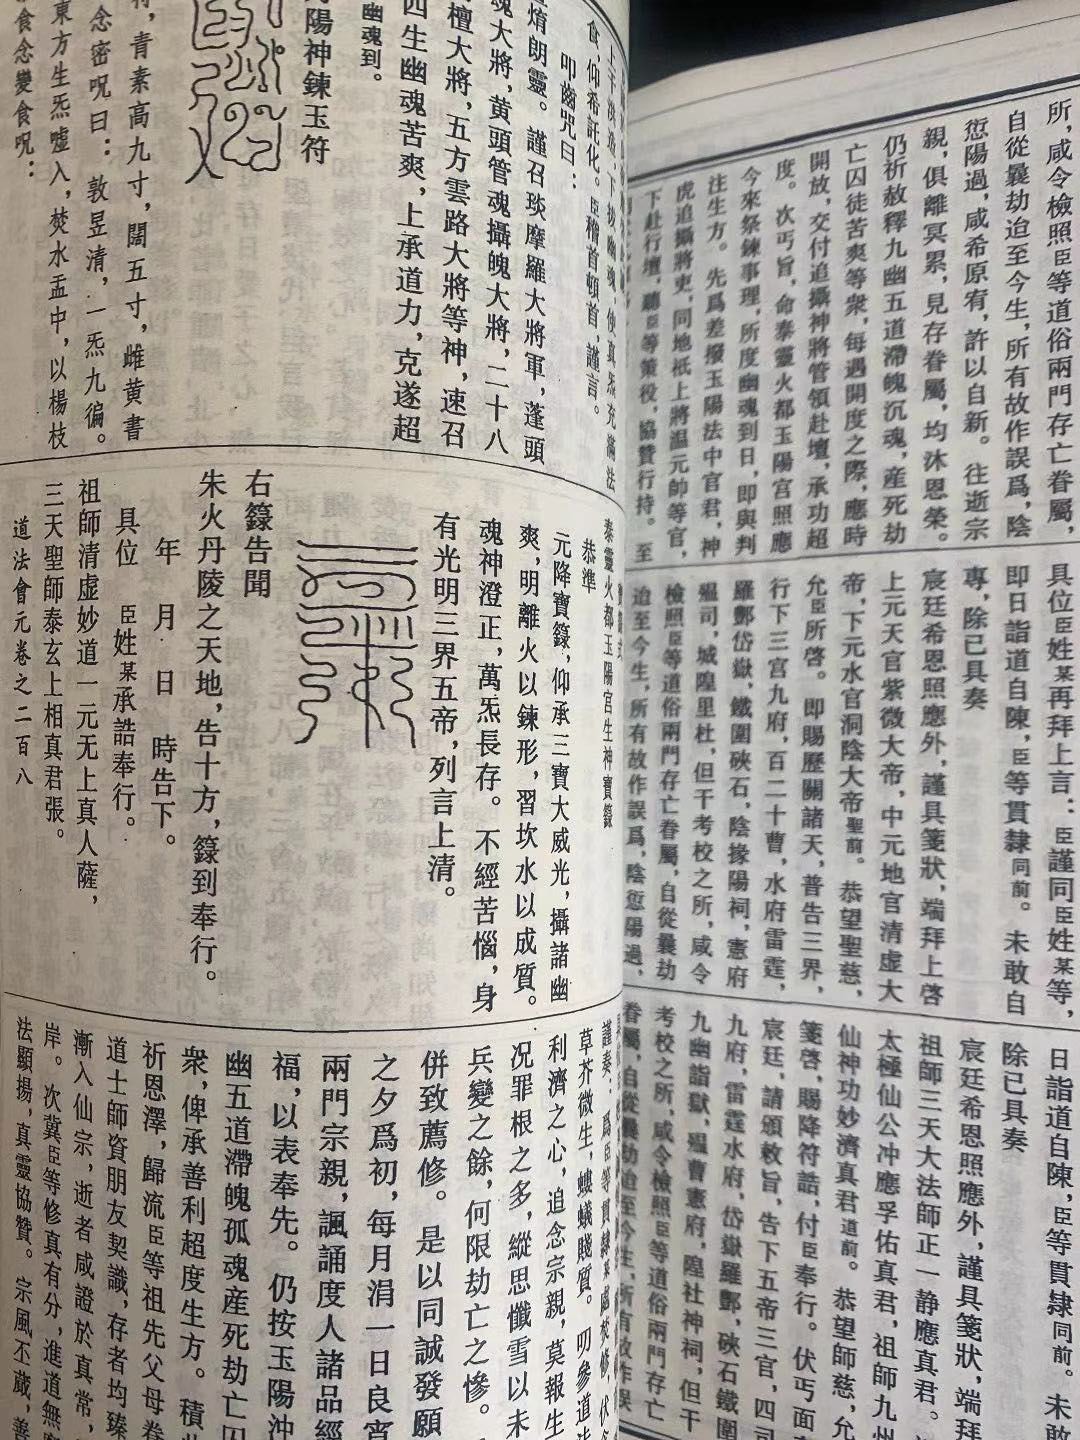 所，咸令檢照臣等道俗兩門存亡眷屬，
自從曩劫迨至今生，所有故作誤爲，陰
愆陽過，咸希原宥，許以自新。往逝宗
親，俱離冥累，見存眷屬，均沐恩榮。
仍祈赦釋九幽五道滯魄沉魂，産死劫
亡囚徒苦爽等衆，每遇開度之際，應時
開放，交付追攝神將管領赴壇，承功超
度。次丐旨，命泰靈火都玉陽宮照應
今來祭鍊事理，所度幽魂到日，即與判
注生方。先爲差撥玉陽法中官君，神
虎追攝將吏，同地祇上將温元帥等官，
下赴行壇，聽臣等策役，協贊行持。至
具位臣姓某再拜上言：臣謹同臣姓某等，
即日詣道自陳，臣等貫隸同前。未敢自
專，除已具奏
宸廷希恩照應外，謹具箋狀，端拜上啓
上元天官紫微大帝，中元地官清虛大
帝，下元水官洞陰大帝聖前。恭望聖慈，
允臣所啓。即賜歷關諸天，普告三界，
行下三宮九府，百二十曹，水府雷霆，
羅酆岱嶽，鐵圍硤石，陰掾陽祠，憲府
瘟司，城隍里社，但干考校之所，咸令
檢照臣等道俗兩門存亡眷屬，自從曩劫
迨至今生，所有故作誤爲，陰愆陽過，
日詣道自陳，臣等貫隸同前。未
除已具奏
宸廷希恩照應外，謹具箋狀，端拜
祖師三天大法師正一静應真君。
太極仙公冲應孚佑真君，祖師九州
仙神功妙濟真君道前。恭望師慈，允
箋啓，賜降符誥，付臣奉行。伏丐面
宸廷，請頒敕旨，告下五帝三官，四司
九府，雷霆水府，岱嶽羅酆，硤石鐵圍
九幽詣獄，瘟曹憲府，隍社神祠，但干
考校之所，咸令檢照臣等道俗兩門存亡
眷屬，自從曩劫迨至今生，所有故作誤
上干浚造，下拔幽魂，使真炁充滿法
食，仰希託化。臣稽首頓首，謹言。
叩齒咒曰：
煃焴朗靈。謹召琰摩羅大將軍，蓬頭
魂大將，黄頭管魂攝魄大將，二十八
檀大將，五方雲路大將等神，速召
四生幽魂苦爽，上承道力，克遂超
幽魂到。
丹陽神鍊玉符
符，青素高九寸，闊五寸，雌黄書
念密呪曰：敦昱清，一炁九徧。
東方生炁噓入，焚水盂中，以楊枝
食念變食呪：
泰靈火都玉陽宮生神寶籙
恭準
元降寶籙，仰承三寶大威光，攝諸幽
爽，明離火以鍊形，習坎水以成質。
魂神澄正，萬炁長存。不經苦惱，身
有光明三界五帝，列言上清。
右籙告聞
朱火丹陵之天地，告十方，籙到奉行。
年月日時告下。
具位臣姓某承誥奉行。
祖師清虛妙道一元无上真人薩，
三天聖師泰玄上相真君張。
道法會元卷之二百八
謹奏：爲臣等貫隸某處焚修，伏念
草芥微生，螻蟻賤質。叨參道法
利濟之心，追念宗親，莫報生
况罪根之多，縱思懺雪以未
兵變之餘，何限劫亡之慘。
併致薦修。是以同誠發願
之夕爲初，每月涓一日良宵
兩門宗親，諷誦度人諸品經
福，以表奉先。仍按玉陽沖
幽五道滯魄孤魂産死劫亡囚
衆，俾承善利超度生方。積此
祈恩澤，歸流臣等祖先父母眷
道士師資朋友契識，存者均臻
漸入仙宗，逝者咸證於真常，
岸。次冀臣等修真有分，進道無
法顯揚，真靈協贊。宗風丕蔵，善